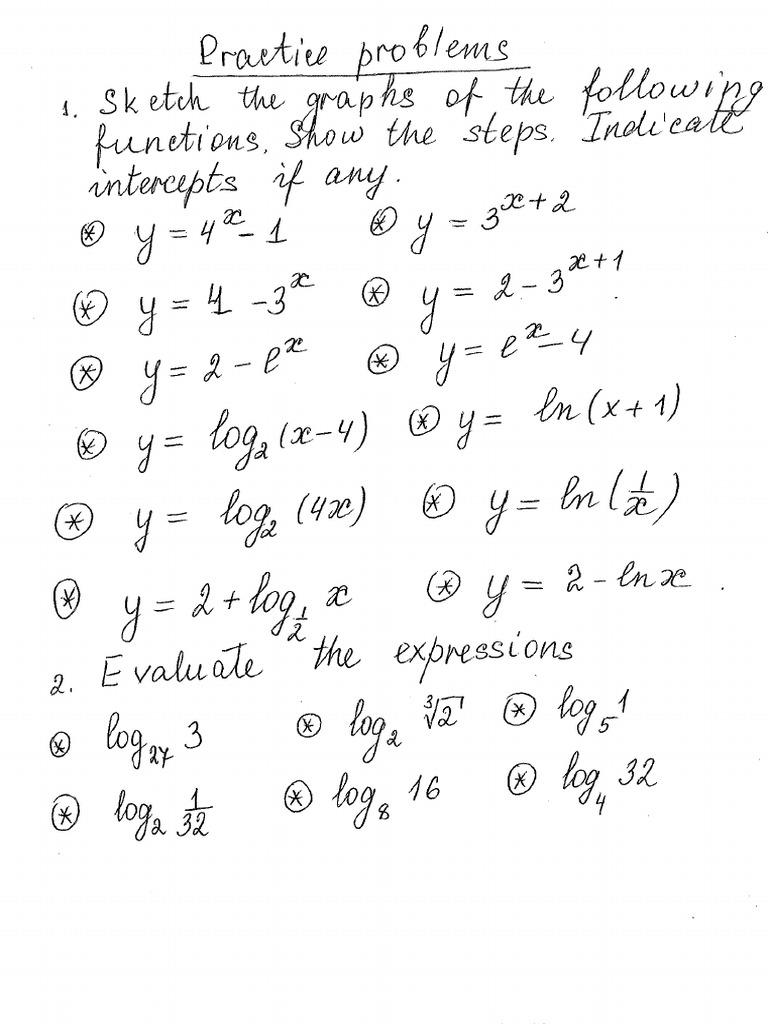 Practice problems
1. Sketch the graphs of the following
functions. Show the steps. Indicate
intercepts if any.
⊛ y = 4^x - 1 ⊛ y = 3^{x+2}
⊛ y = 4 - 3^x ⊛ y = 2 - 3^{x+1}
⊛ y = 2 - e^x ⊛ y = e^x - 4
⊛ y = log₂(x-4) ⊛ y = ln(x+1)
⊛ y = log₂(4x) ⊛ y = ln(1/x)
⊛ y = 2 + log_{1/2} x ⊛ y = 2 - ln x.
2. Evaluate the expressions
⊛ log₂₇ 3 ⊛ log₂ ∛2 ⊛ log₅ 1
⊛ log₂ 1/32 ⊛ log₈ 16 ⊛ log₄ 32